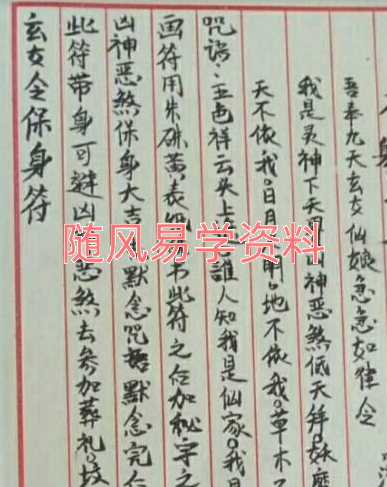 玄女令保身符
此符带身可避凶恶煞去参加葬礼。坟
凶神恶煞保身大吉默念咒语默念完后
画符用朱砂黄表纸书此符之后加秘字之
咒语：五色祥云头上谁人知我是仙家。我是
天不依我。日月明。地不依我。草木
我是灵神下天界神恶煞低天拜。妖魔
吾奉九天玄女仙姨急急如律令
随风易学资料